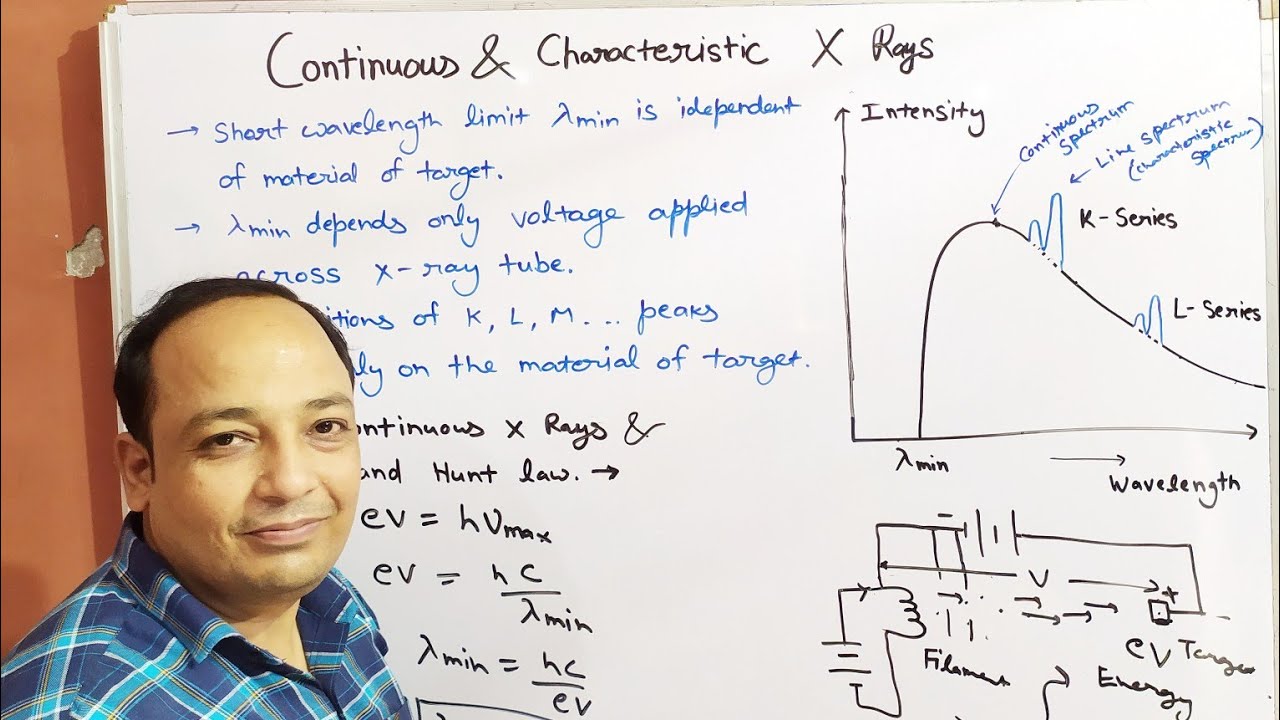 Continuous & Characteristic X Rays
→ Short wavelength limit λmin is idependent
of material of target.
→ λmin depends only voltage applied
across x-ray tube.
of K, L, M.... peaks
on the material of target.
X Rays &
and Hunt law. →
eV = hνmax
eV = hc/λmin
λmin = hc/eV
Intensity
Continuous
Spectrum
Line spectrum
(characteristic
spectrum)
K-Series
L-Series
λmin
Wavelength
-
V
+
Filament
eV
Energy